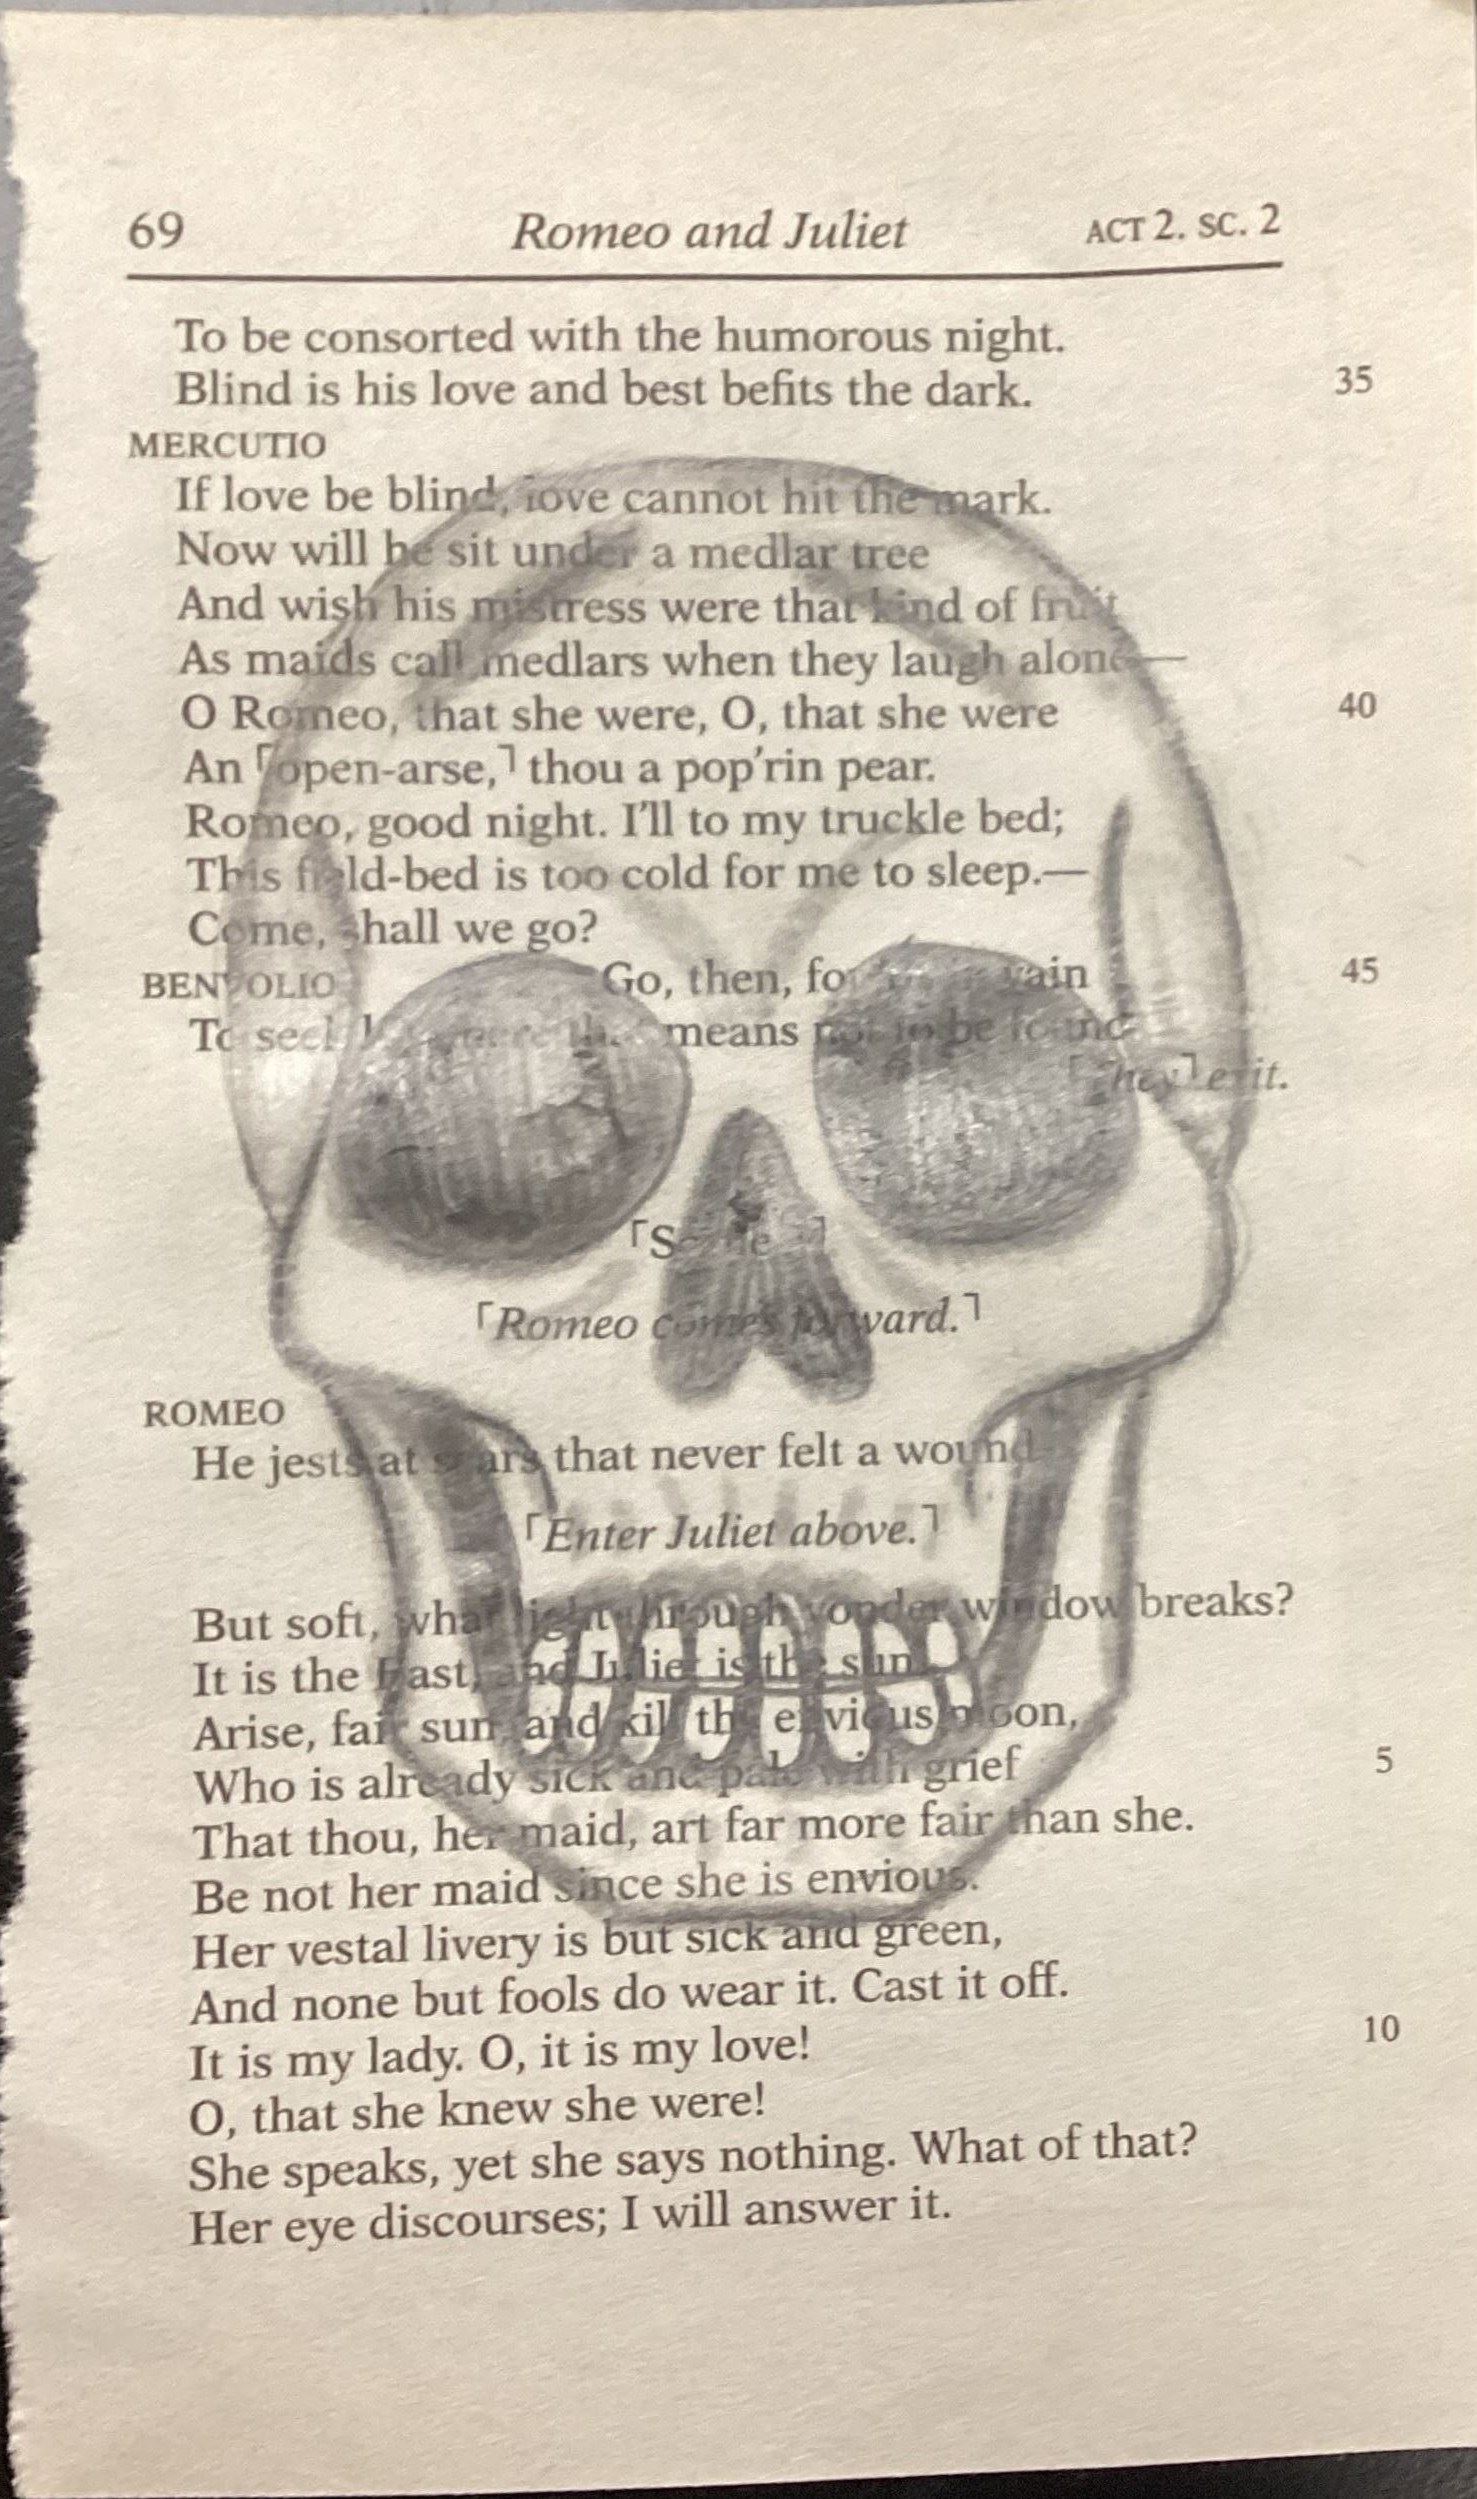 69 Romeo and Juliet ACT 2. SC. 2
To be consorted with the humorous night.
Blind is his love and best befits the dark. 35
MERCUTIO
If love be blind, love cannot hit the mark.
Now will he sit under a medlar tree
And wish his mistress were that kind of fruit
As maids call medlars when they laugh alone.—
O Romeo, that she were, O, that she were 40
An ⌜open-arse,⌝ thou a pop'rin pear.
Romeo, good night. I'll to my truckle bed;
This field-bed is too cold for me to sleep.—
Come, shall we go?
BENVOLIO Go, then, for vain 45
To seek means not to be found
⌜They⌝ exit.
⌜Scene ⌝
⌜Romeo comes forward.⌝
ROMEO
He jests at scars that never felt a wound
⌜Enter Juliet above.⌝
But soft, what light through yonder window breaks?
It is the East, and Juliet is the sun.
Arise, fair sun, and kill the envious moon,
Who is already sick and pale with grief 5
That thou, her maid, art far more fair than she.
Be not her maid since she is envious.
Her vestal livery is but sick and green,
And none but fools do wear it. Cast it off.
It is my lady. O, it is my love! 10
O, that she knew she were!
She speaks, yet she says nothing. What of that?
Her eye discourses; I will answer it.